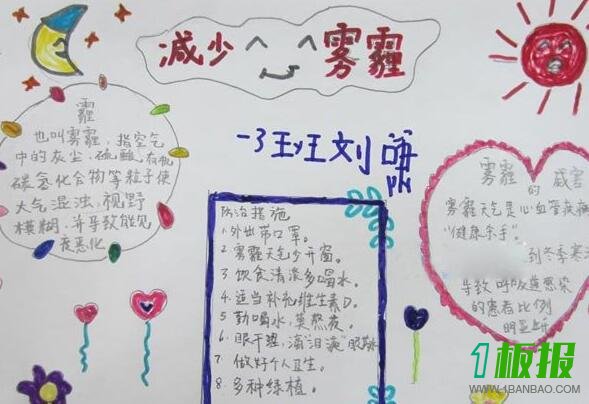 减少 雾霾
霾
也叫雾霾，指空气
中的灰尘、硫酸、有机
碳氢化合物等粒子使
大气混浊，视野
模糊，并导致能见
度恶化
防治措施
1、外出带口罩。
2、雾霾天气少开窗。
3、饮食清淡多喝水。
4、适当补充维生素D。
5、勤喝水，莫熬夜。
6、眼干涩，滴"泪滴"眼药水
7、做好个人卫生。
8、多种绿植。
雾霾
的 威害
雾霾天气是心血管疾病
"健康杀手"。
到冬季寒冷
导致呼吸道感染
的患者比例
明显上升
1板报
WWW.1BANBAO.COM